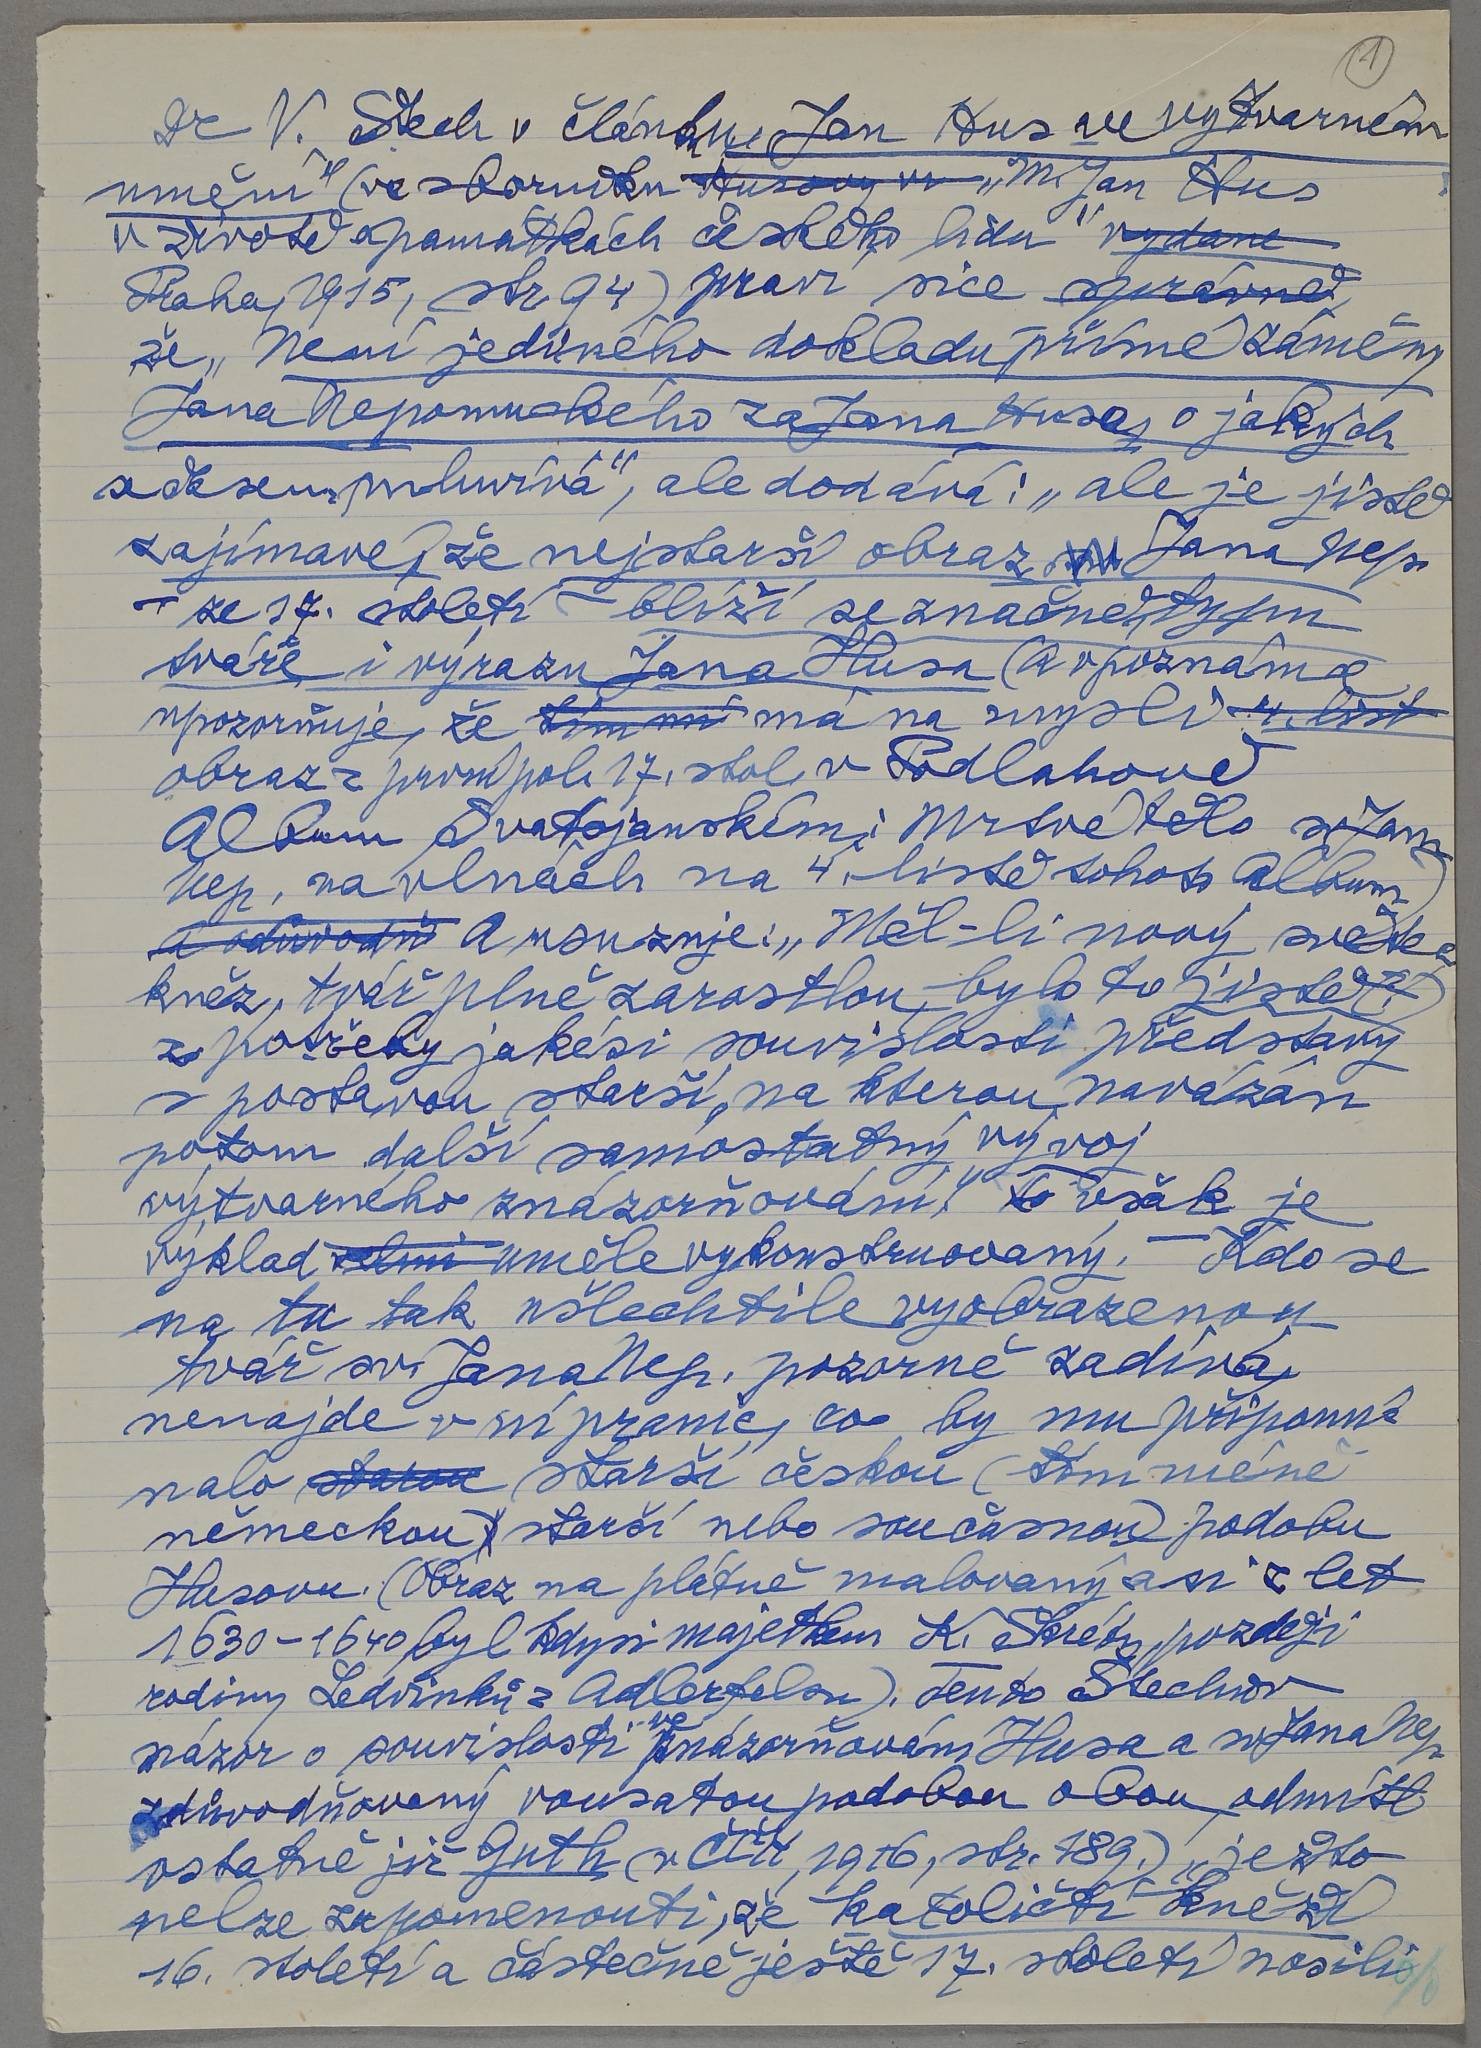 1
Dr V. Štech v článku „Jan Hus ve výtvarném
umění" (ve sborníku Husovy vr „M. Jan Hus
v životě a památkách českého lidu" vydané
Praha, 1915, str. 94) praví sice správně,
že „Není jediného dokladu přímé záměny
Jana Nepomuckého za Jana Husa, o jakých
se mluvívá", ale dodává: „ale je jistě
zajímavé, že nejstarší obraz Jana Nep.
– ze 17. století – blíží se značně typu
tváře i výrazu Jana Husa (a v poznámce
upozorňuje, že tím má na mysli 4. list
obraz z první pol. 17. stol. v Podlahově
Album Svatojanském: Mrtvé tělo sv. Jana
Nep. na vlnách na 4. listě tohoto Album)
a odůvodň A usuzuje: „Měl-li nový světec,
kněz, tvář plně zarostlou, bylo to jistě (?)
z potřeby jakési souvislosti představy
s postavou starší, na kterou navázán
potom další samostatný vývoj
výtvarného znázorňování." To však je
výklad velmi uměle vykonstruovaný. – Kdo se
na tu tak ušlechtile vyobrazenou
tvář sv. Jana Nep. pozorně zadívá,
nenajde v ní pranic, co by mu připomí-
nalo starou starší českou (tím méně
německou) starší nebo současnou podobu
Husovu. (Obraz na plátně malovaný asi z let
1630–1640 byl kdysi majetkem K. Škréty, později
rodiny Ledvinků z Adlerfelsu). Tento Štechův
názor o souvislosti ve znázorňování Husa a sv. Jana Nep.
zdůvodňovaný vousatou podobou obou, odmítl
ostatně již Guth (v ČČH, 1916, str. 189.) „ježto
nelze zapomenouti, že katoličtí kněží
16. století a částečně ještě 17. století nosili